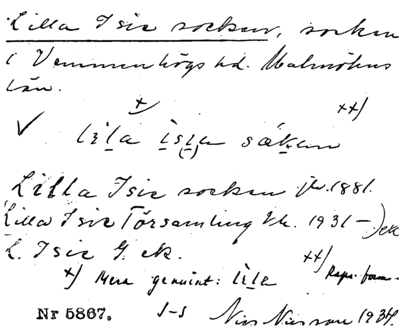 Lilla Isie socken, socken
i Vemmenhögs hd. Malmöhus
län.
x) xx)
✓ lila isia såkan
Lilla Isie socken Jb. 1881.
(Lilla Isie Församling 1931-)
L. Isie G. ek. xx)
x) Mera genuint: lila
Nr 5867. S-s Nils Nilsson 1934.